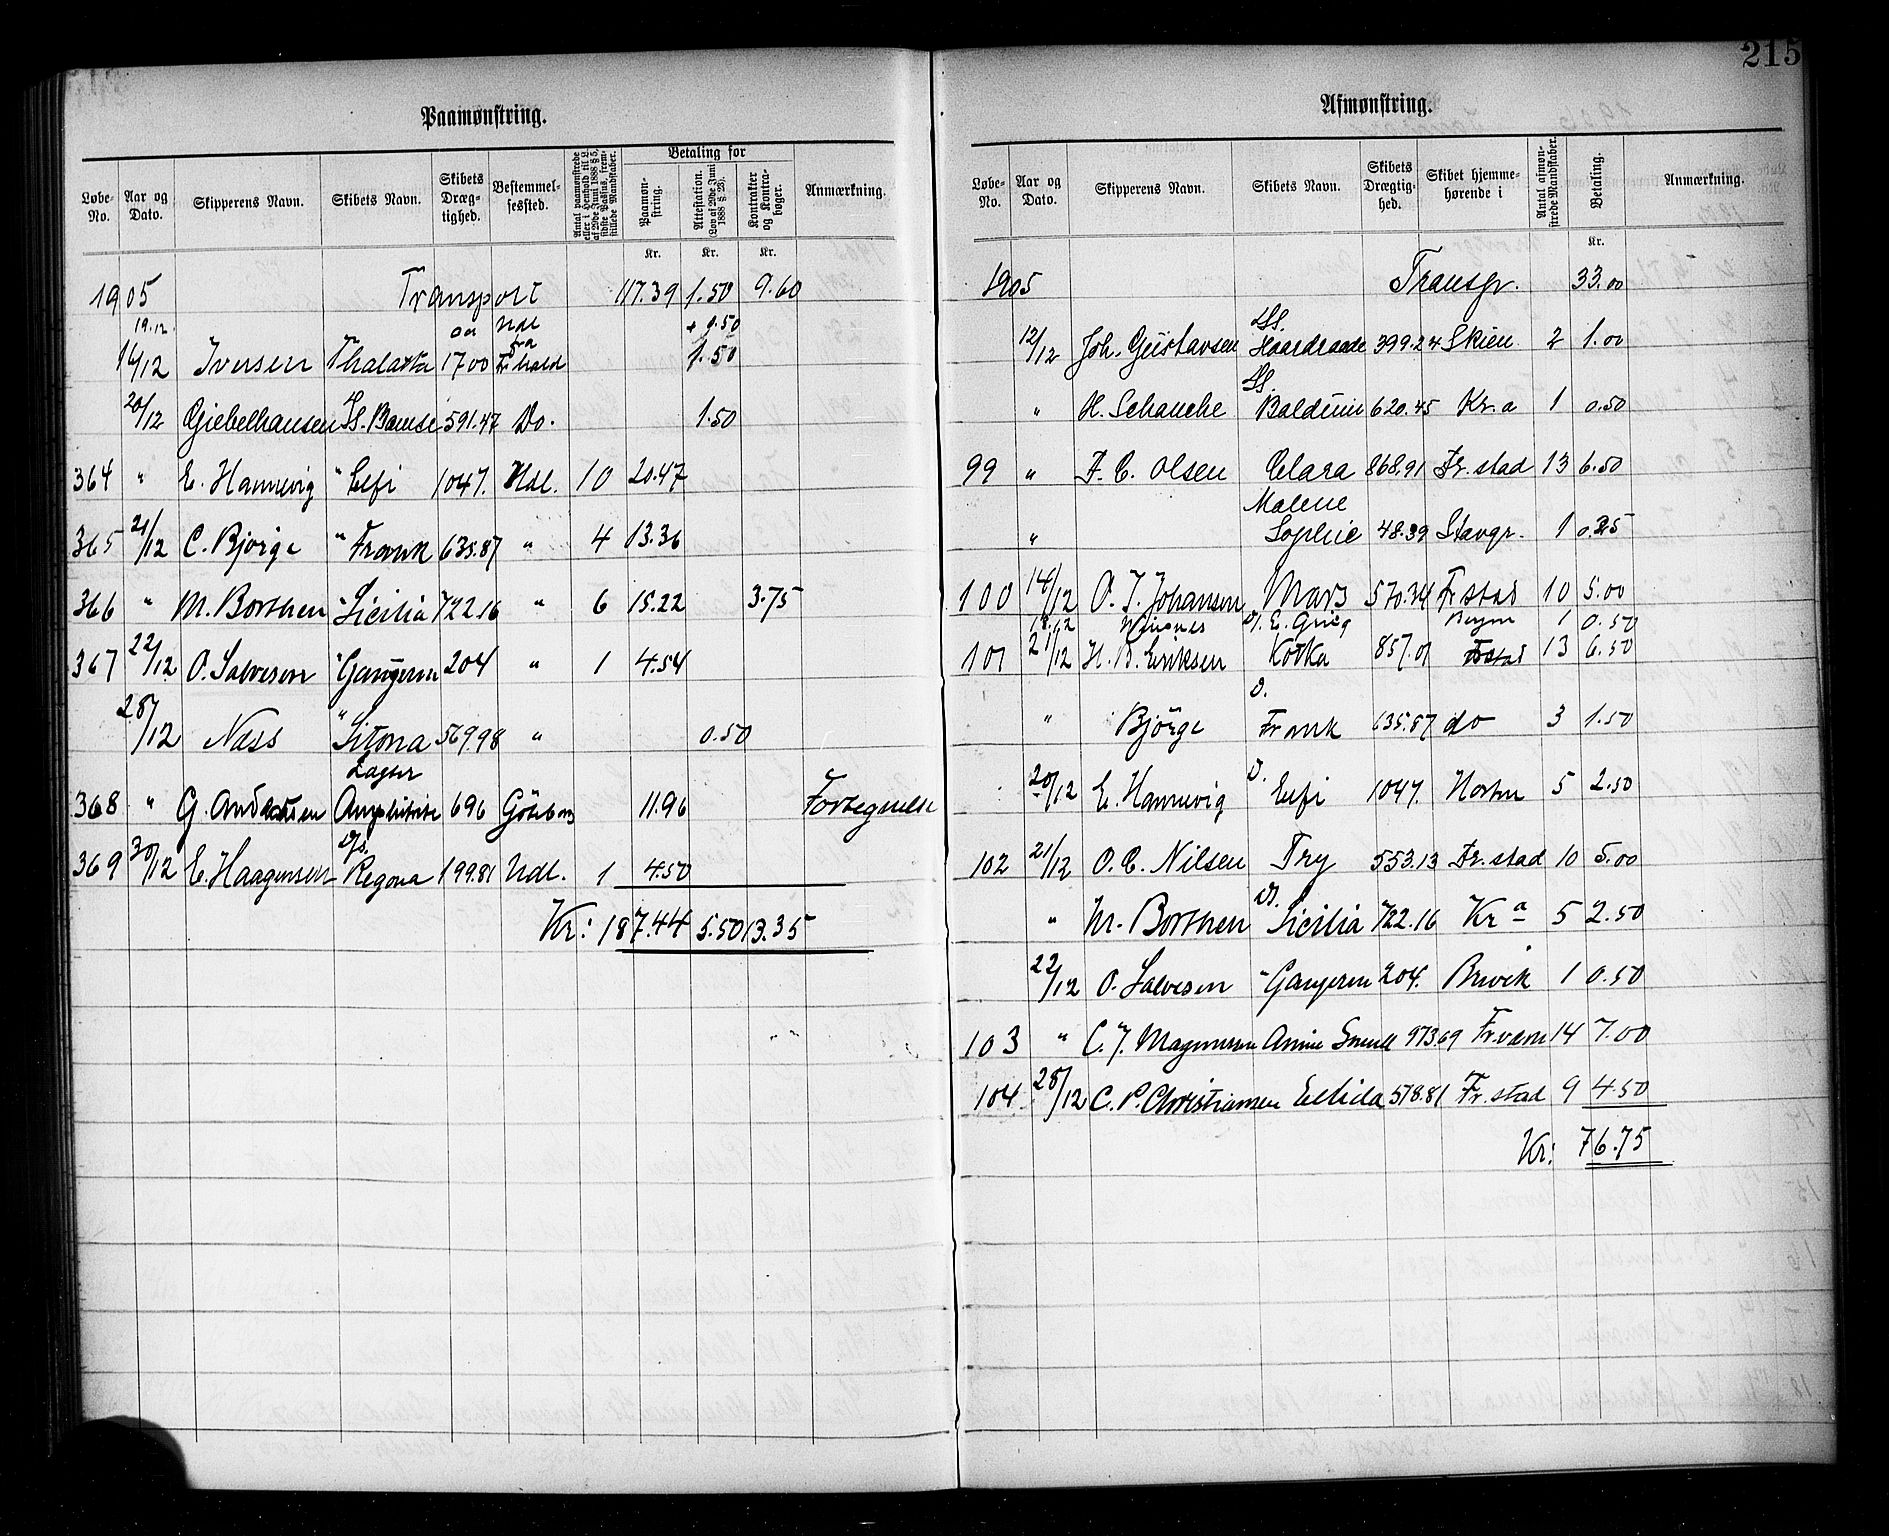 215
Paamønstring.
Løbe-No. Aar og Dato. Skipperens Navn. Skibets Navn. Skibets Dræg-tighed. Bestemmel-sessted. Antal paamønstrede eller i Henhold til L. af 29de Juni 1888 § 5, sidste Passus, frem-stillede Mandskaber. Betaling for Paamøn-string. Attestation. (Lov af 29de Juni 1888 § 23). Kontrakter og Kontra-bøger. Anmærkning.
Kr. Kr. Kr.
1905 Transport 117.39 1.50 9.60
19.12. Udl + 0.50
16/12 Iversen Thalatta 1700 fra Fr.hald 1.50
20/12 Giebelhausen SS. Bamse 591.47 Do. 1.50
364 " E. Hannevig " Elfi 1047. Udl. 10 20.47
365 21/12 C. Bjørge " Frank 635.87 " 4 13.36
366 " M. Borthen " Sicilia 722.16 " 6 15.22 3.75
367 22/12 O. Salvesen " Gangeren 204 " 1 4.54
28/12 Næss " Sitona 569.98 " 0.50
368 " G. Andersen Amphitrite 696 Göteborg 11.96 Fortegnelse
369 30/12 E. Haagensen D/S. Regona 199.81 Udl. 1 4.50
Kr: 187.44 5.50 13.35
Afmønstring.
Løbe-No. Aar og Dato. Skipperens Navn. Skibets Navn. Skibets Drægtig-hed. Skibet hjemme-hørende i Antal afmøn-strede Mandskaber. Betaling. Anmærkning.
Kr.
1905 Transp. 33.00
12/12 Joh. Gustavsen SS. Haardraade 399.24 Skien 2 1.00
" H. Schanche SS. Balduin 620.45 Kr.a 1 0.50
99 " F. C. Olsen Clara 868.91 Fr.stad 13 6.50
" Malene Sophie 48.39 Stavgr. 1 0.25
100 14/12 O. J. Johansen Mars 570.34 Fr.stad 10 5.00
18.12 D/. E. Grieg Bergen 1 0.50
101 21/12 H. B. Eriksen Kotka 857.01 Fr.stad 13 6.50
" Bjørge D. Frank 635.87 do 3 1.50
20/12 E. Hannevig D. Elfi 1047. Horten 5 2.50
102 21/12 O. C. Nilsen Try 553.13 Fr.stad 10 5.00
" M. Borthen D/. Sicilia 722.16 Kr a 5 2.50
22/12 O. Salvesen " Gangeren 204. Brevik 1 0.50
103 " C. J. Magnussen Annie Smull 973.69 Fr.værn 14 7.00
104 28/12 C. P. Christiansen Ellida 518.81 Fr.stad 9 4.50
Kr: 76.75